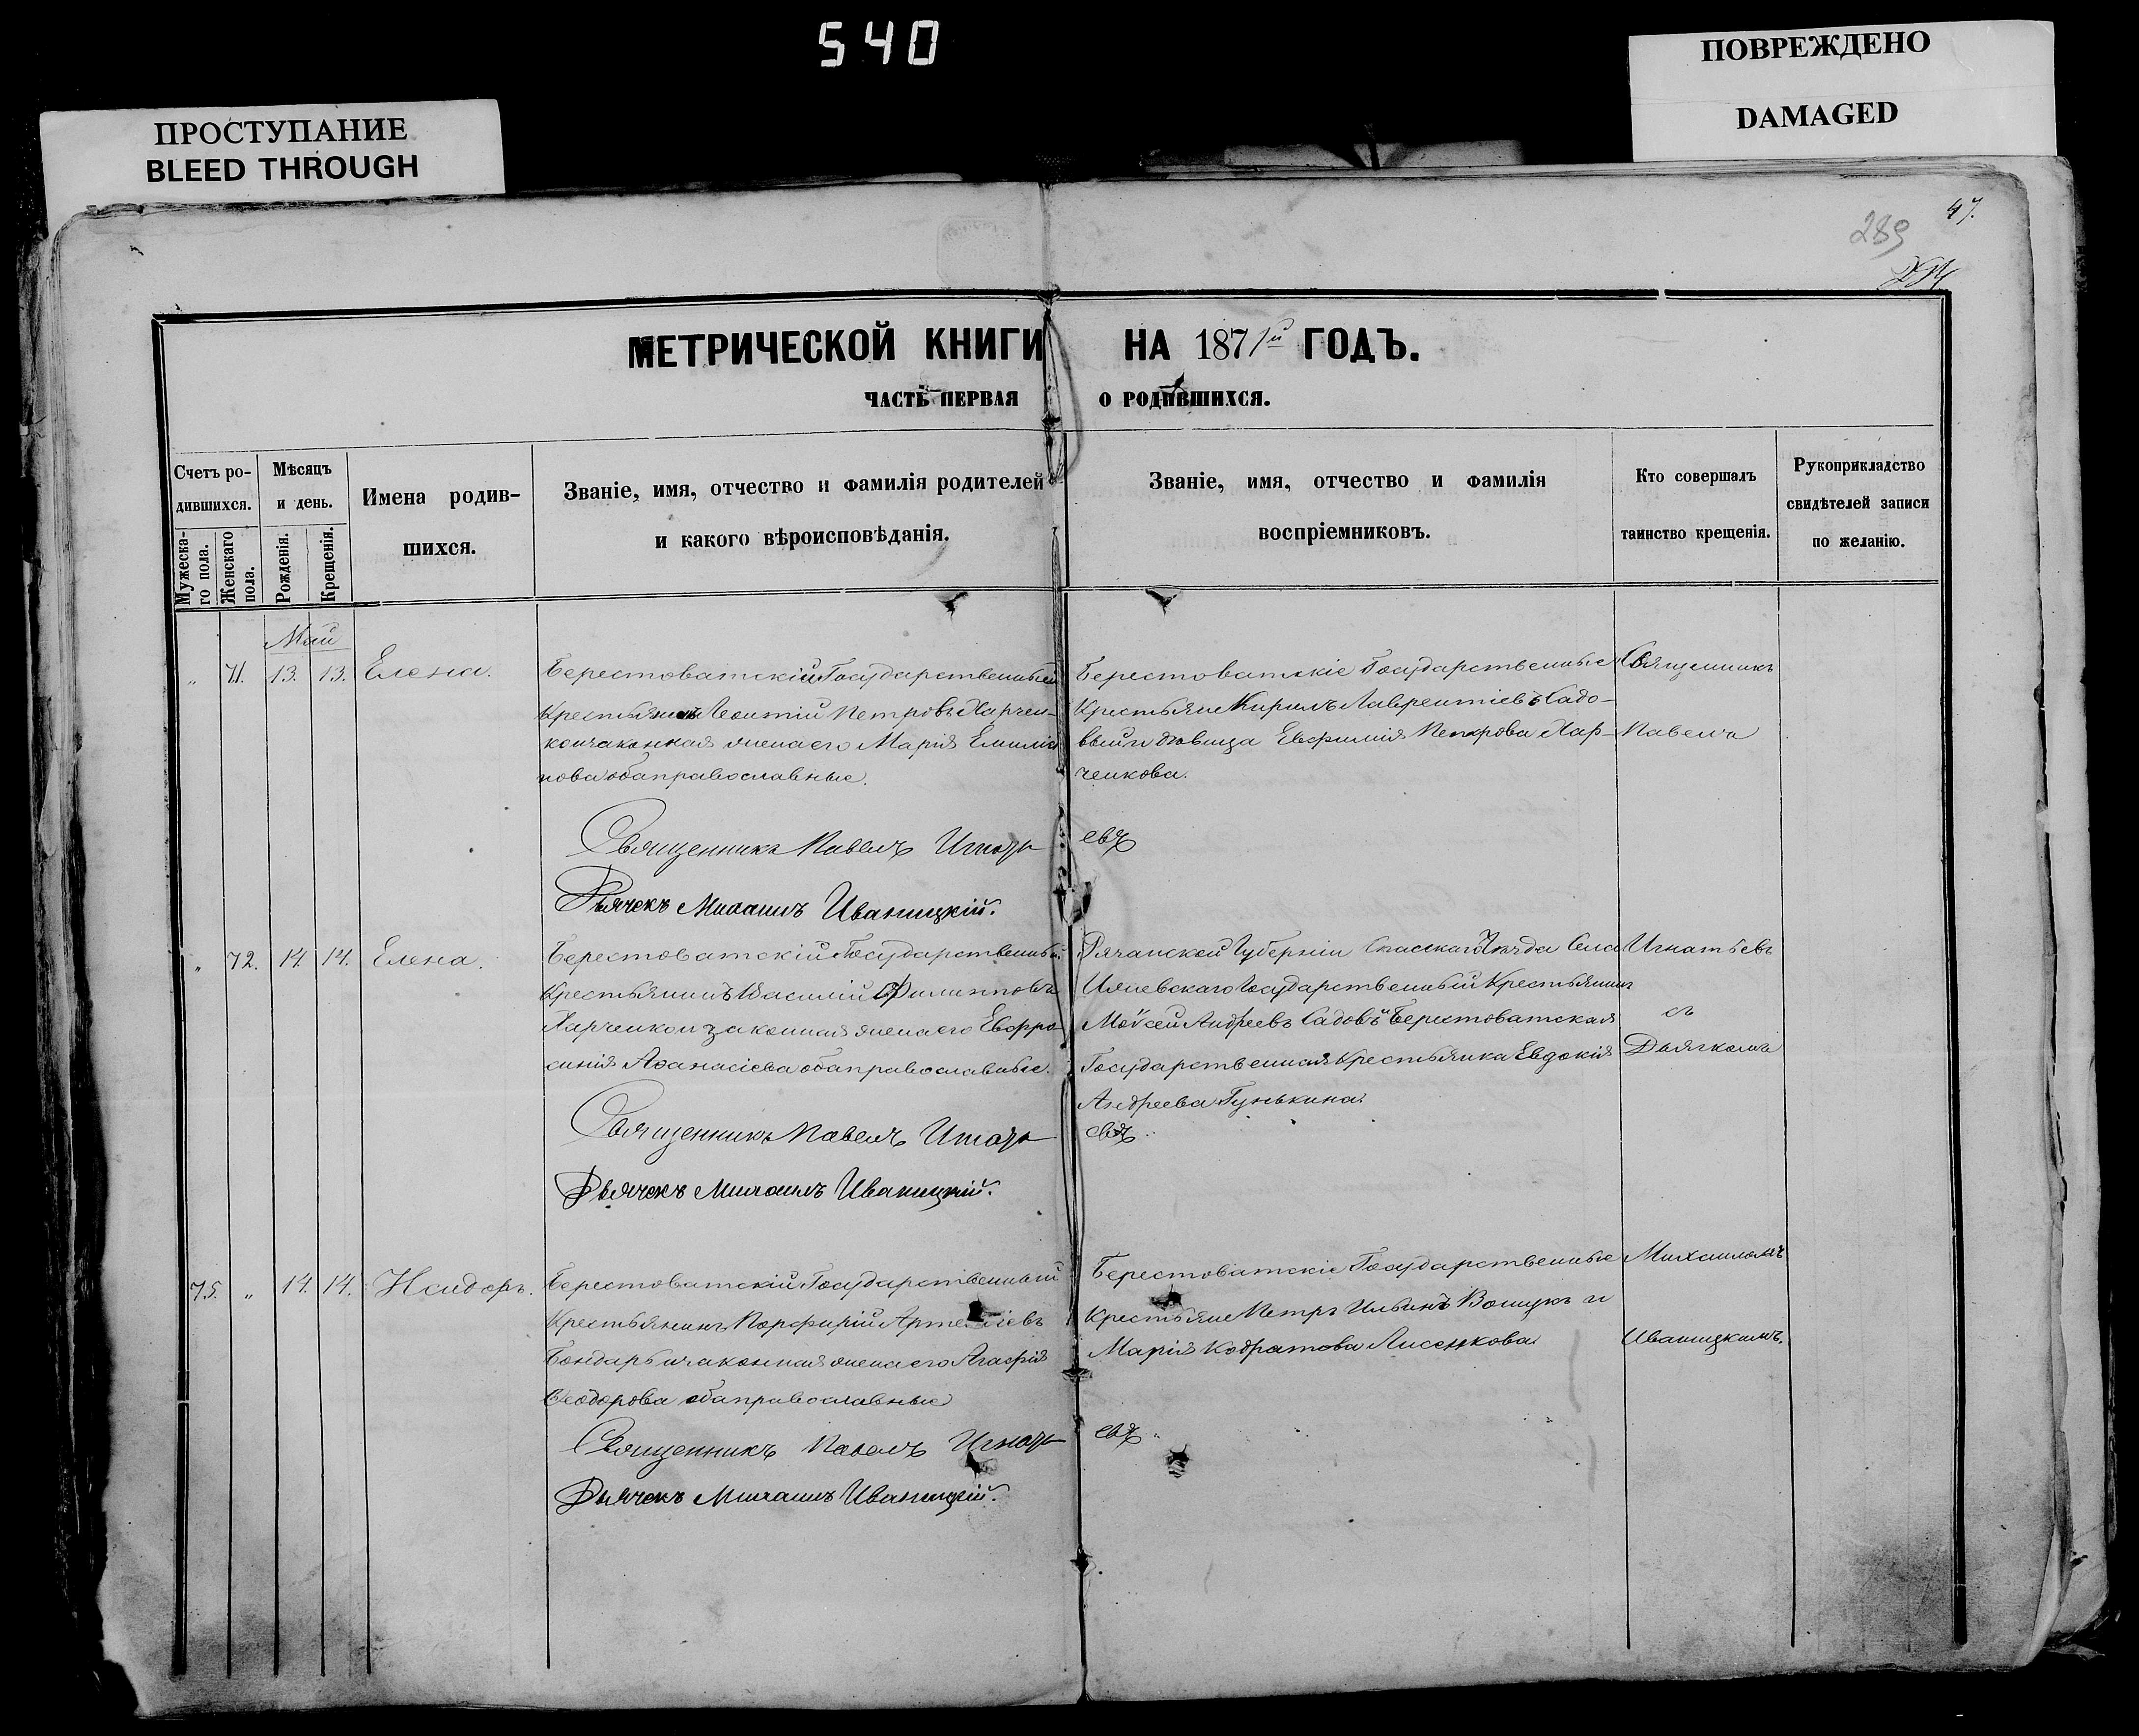 540
ПРОСТУПАНИЕ
BLEED THROUGH
ПОВРЕЖДЕНО
DAMAGED
47.
289
МЕТРИЧЕСКОЙ КНИГИ НА 1871й ГОДЪ.
ЧАСТЬ ПЕРВАЯ О РОДИВШИХСЯ.
Счетъ ро-
дившихся.
Мужеска-
го пола.
Женскаго
пола.
Мѣсяцъ
и день.
Рожденія.
Крещенія.
Имена родив-
шихся.
Званіе, имя, отчество и фамилія родителей
и какого вѣроисповѣданія.
Званіе, имя, отчество и фамилія
воспріемниковъ.
Кто совершалъ
таинство крещенія.
Рукоприкладство
свидѣтелей записи
по желанію.
Май
„ 71. 13. 13. Елена.
Берестоватскій Государственный
Крестьянинъ Леонтій Петровъ Харчен-
ко и законная жена его Марія Емилія-
нова оба православные.
Берестоватскіе Государственные
Крестьяне Кирилъ Лаврентіевъ Садо-
вый и дѣвица Евфимія Петрова Хар-
ченкова.
Священникъ
Павелъ
Священникъ Павелъ Игнатьевъ
Дьячекъ Михаилъ Иваницкій.
„ 72. 14. 14. Елена.
Берестоватскій Государственный
Крестьянинъ Василій Филипповъ
Харченко и законная жена его Евфро-
синія Аѳанасіева оба православные.
Рязанской Губерніи Спасскаго Уѣзда Села
Государственный Крестьянинъ
Мойсей Андреевъ Садовъ и Берестоватская
Государственная Крестьянка Евдокія
Андреева Гунькина.
Игнатьевъ
съ
Дьячкомъ
Священникъ Павелъ Игнатьевъ
Дьячекъ Михаилъ Иваницкій.
75. „ 14. 14. Исидоръ.
Берестоватскій Государственный
Крестьянинъ Порфирій Артеміевъ
Бондарь и законная жена его Агафія
Ѳеодорова оба православные
Берестоватскіе Государственные
Крестьяне Петръ Ильинъ и
Марія Кодратова Лисенкова.
Михаиломъ
Иваницкимъ.
Священникъ Павелъ Игнатьевъ
Дьячекъ Михаилъ Иваницкій.